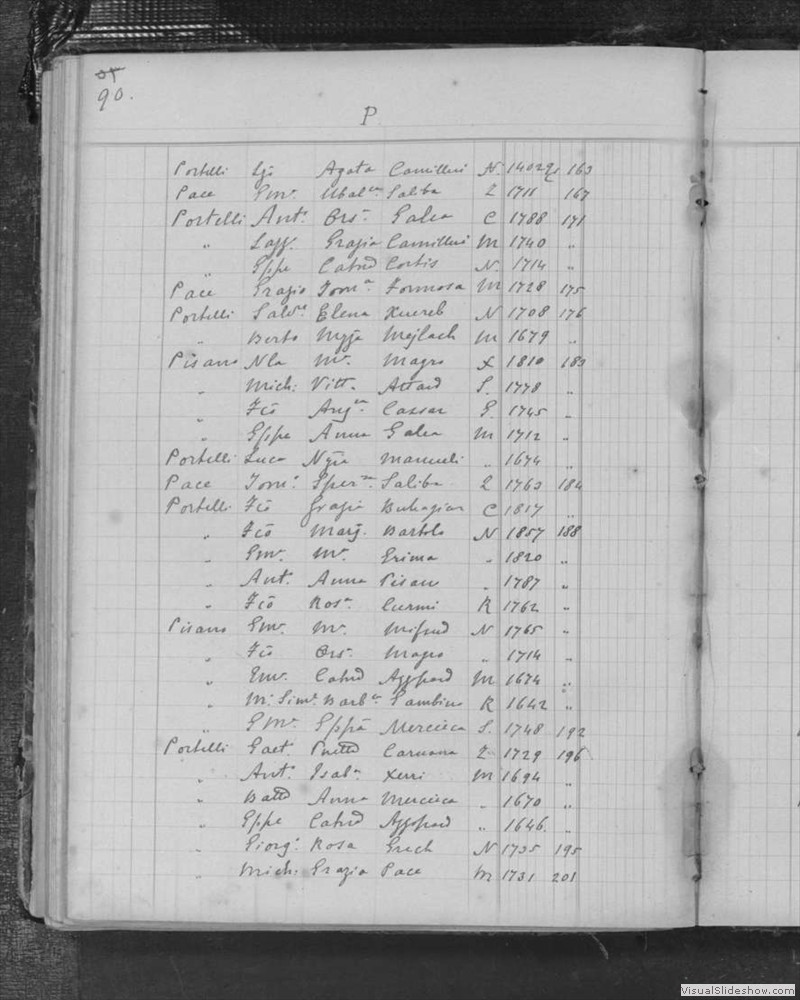 90.
P
Portelli Agata Camilleri N. 163
Pace Emr. Saliba Z 1711 167
Portelli Ant. Ors. Galea C 1788 171
" Grazia Camilleri M 1740 "
" Gppe Catnd Cortis N. 1714 "
Pace Grazio Formosa M 1728 175
Portelli Salv. Elena Xuereb N 1708 176
" Berto Mejlach M 1679 "
Pisano Nla Mr. Magro X 1810 183
" Mich: Vitt. Attard S. 1778 "
" Fco Cassar G. 1745 "
" Gppe Anna Galea M 1712 "
Portelli Luca Manueli " 1674 "
Pace Saliba Z 1763 184
Portelli Fco Grazia Buhagiar C 1817 "
" Fco Marg. Bartolo N 1857 188
" Emr. Mr. Grima " 1820 "
" Ant. Anna Pisano " 1787 "
" Fco Rosa Curmi R 1762 "
Pisano Emr. Mr. Mifsud N 1765 "
" Fco Ors. Magro " 1714 "
" Emr. Catnd Agspard M 1674 "
" Gambino R 1642 "
" Emr. Mercieca S. 1748 192
Portelli Gaet. Caruana Z 1729 196
" Ant. Isab. Xerri M 1694 "
" Anna Mercieca " 1670 "
" Gppe Catnd Agspard " 1646. "
" Giorg. Rosa Grech N 1735 195
" Mich: Grazia Pace M 1731 201
VisualSlideshow.com